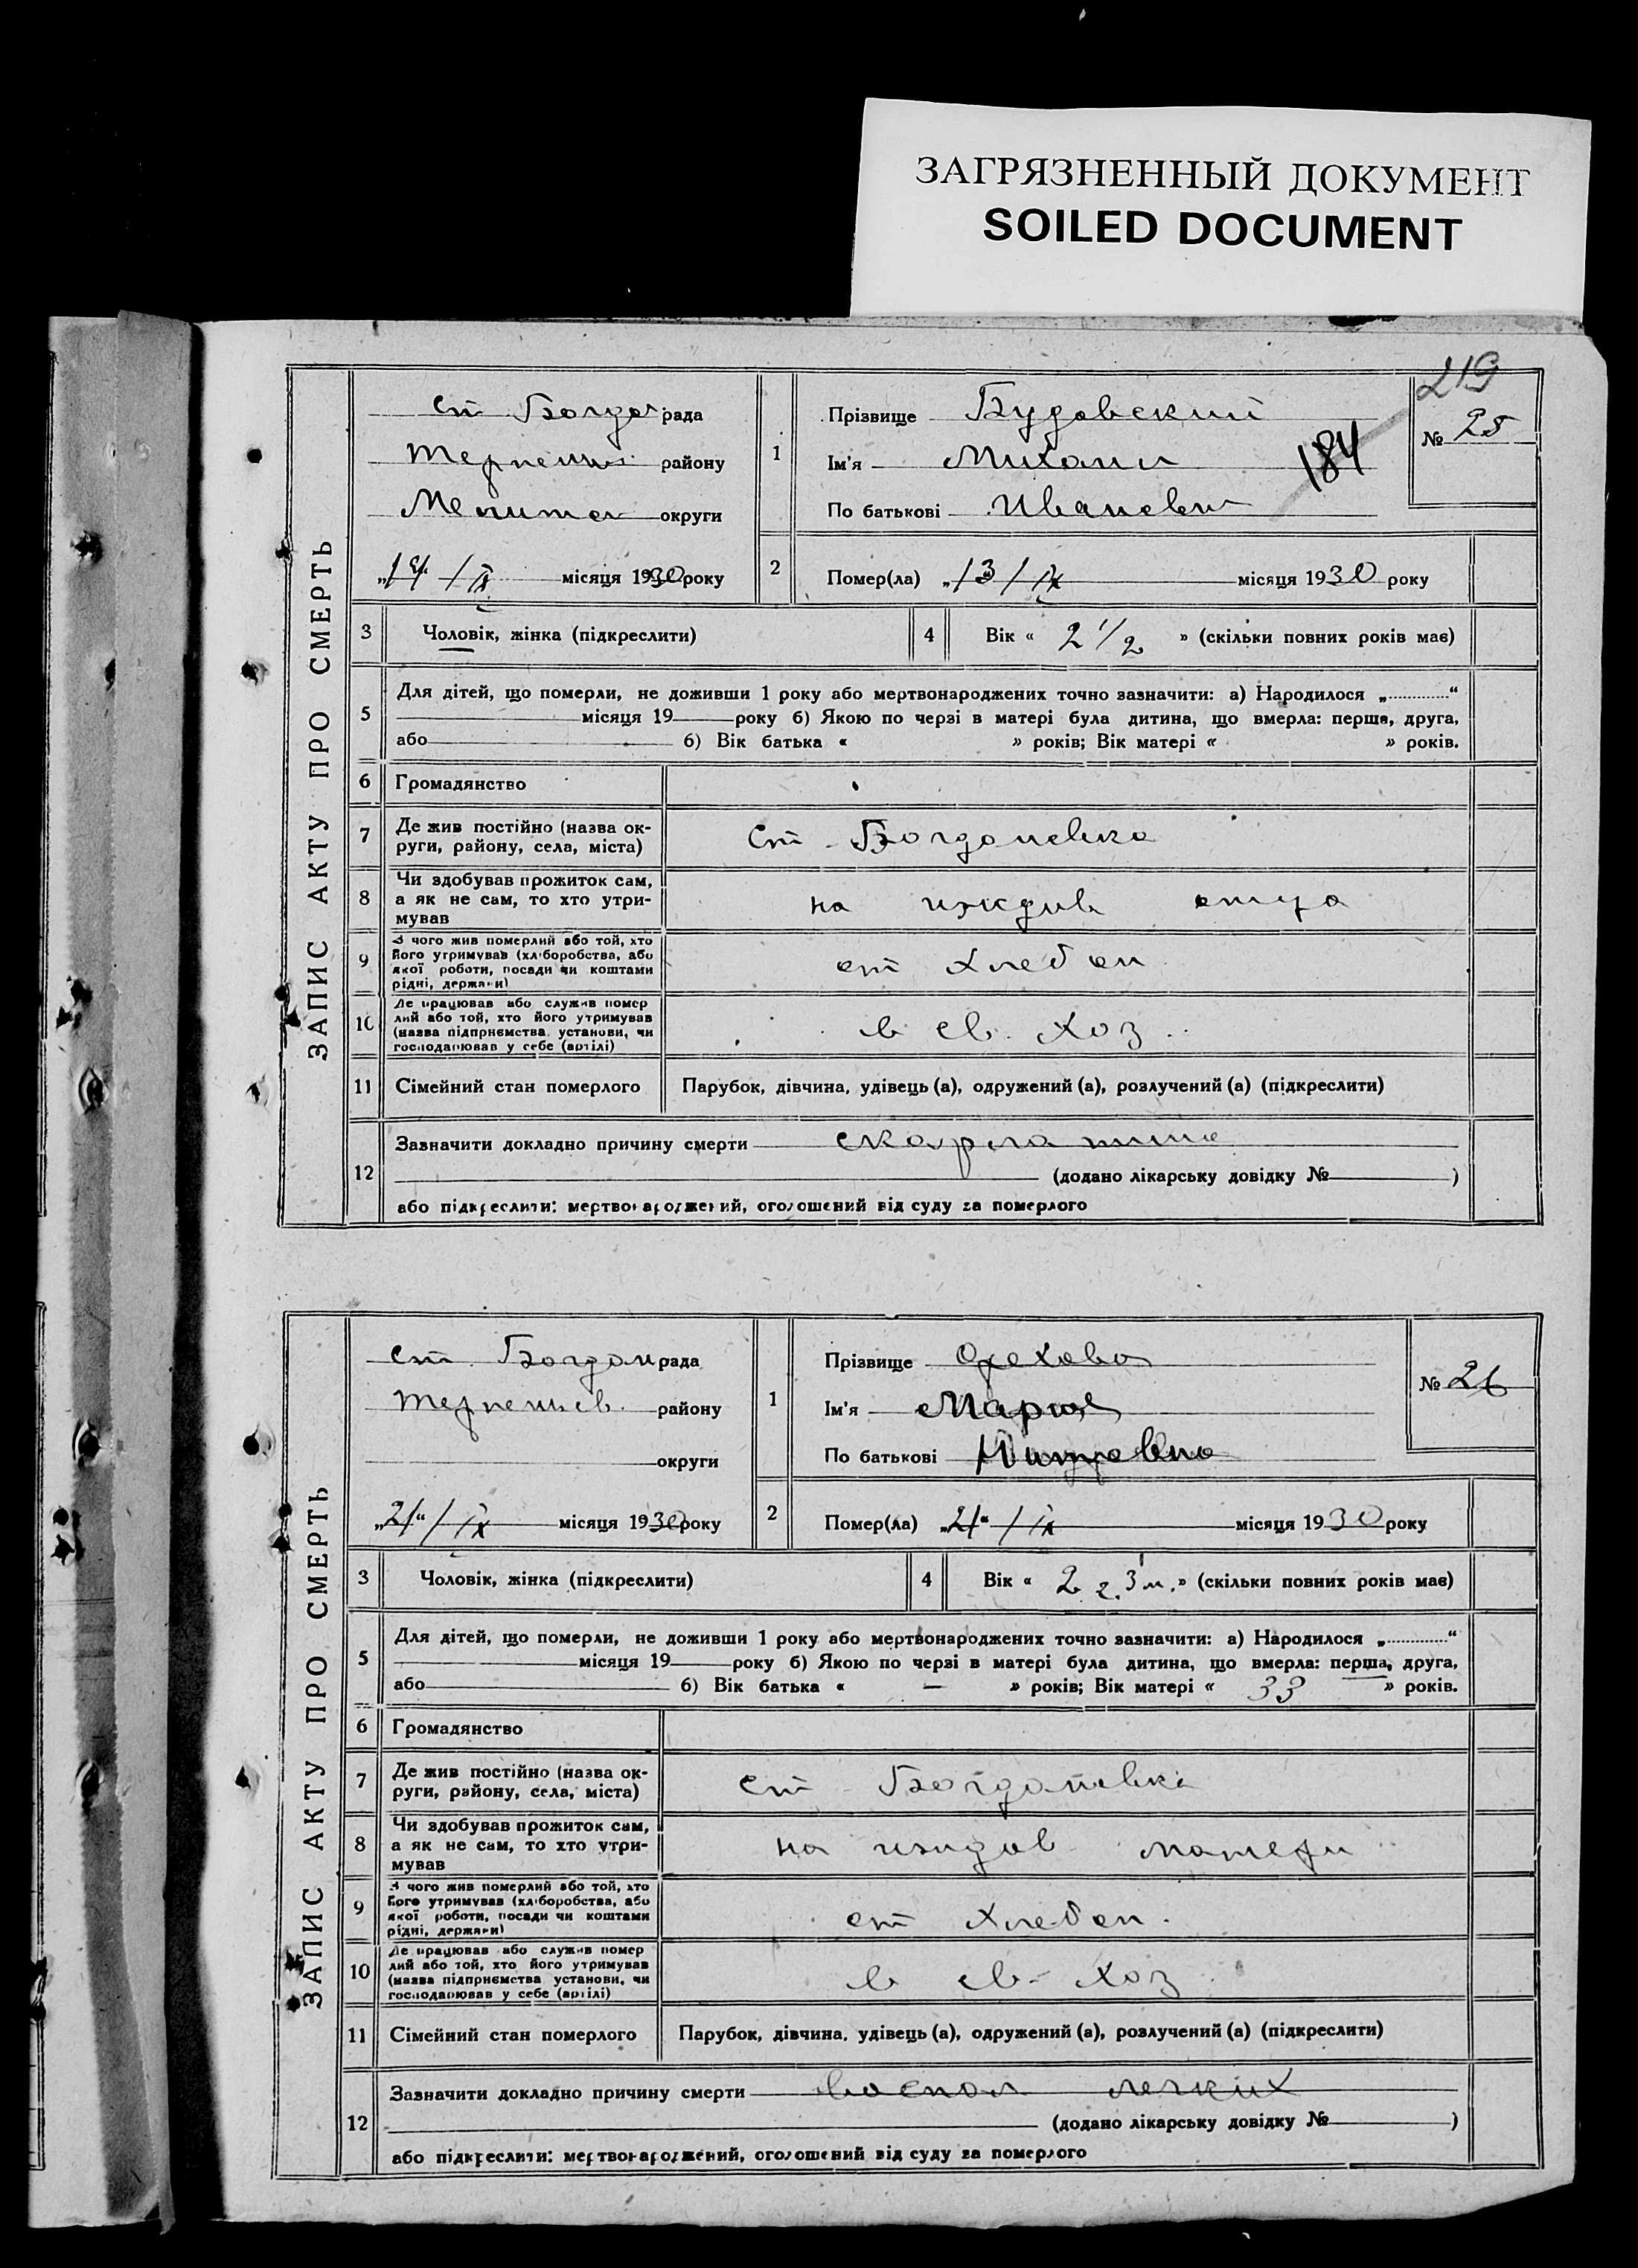 ЗАГРЯЗНЕННЫЙ ДОКУМЕНТ
SOILED DOCUMENT
219
184
ЗАПИС АКТУ ПРО СМЕРТЬ
ст Богдан рада
района Терпеньи району
Мелитоп округи
„14“ / ІХ місяця 1930 року
1
Прізвище Будовский
Ім'я Михаил
По батькові Иванович
№ 25
2
Помер(ла) „13 / ІХ місяця 1930 року
3
Чоловік, жінка (підкреслити)
4
Вік « 2 1/2 » (скільки повних років має)
5
Для дітей, що померли, не доживши 1 року або мертвонароджених точно зазначити: а) Народилося „............“
місяця 19 року б) Якою по черзі в матері була дитина, що вмерла: перша, друга,
або б) Вік батька « » років; Вік матері « » років.
6
Громадянство
7
Де жив постійно (назва ок-
руги, району, села, міста)
Ст Богдановка
8
Чи здобував прожиток сам,
а як не сам, то хто утри-
мував
на иждив отца
9
З чого жив померлий або той, хто
його утримував (хліборобства, або
якої роботи, посади чи коштами
рідні, держави)
от хлебоп
10
Де працював або служив помер
лий або той, хто його утримував
(назва підприємства, установи, чи
господарював у себе (артілі)
в св. хоз.
11
Сімейний стан померлого
Парубок, дівчина, удівець (а), одружений (а), розлучений (а) (підкреслити)
12
Зазначити докладно причину смерти скарлатина
(додано лікарську довідку № )
або підкреслити: мертвонароджений, оголошений від суду за померлого
ЗАПИС АКТУ ПРО СМЕРТЬ
ст. Богдан рада
Терпеньев. району
округи
„21“ / ІХ місяця 1930 року
1
Прізвище Орехова
Ім'я Мария
По батькові
№ 26
2
Помер(ла) „21“ / ІХ місяця 1930 року
3
Чоловік, жінка (підкреслити)
4
Вік « 2 г. 3 м. » (скільки повних років має)
5
Для дітей, що померли, не доживши 1 року або мертвонароджених точно зазначити: а) Народилося „............“
місяця 19 року б) Якою по черзі в матері була дитина, що вмерла: перша, друга,
або б) Вік батька « — » років; Вік матері « 33 » років.
6
Громадянство
7
Де жив постійно (назва ок-
руги, району, села, міста)
ст Богдановка
8
Чи здобував прожиток сам,
а як не сам, то хто утри-
мував
на иждив матери
9
З чого жив померлий або той, хто
його утримував (хліборобства, або
якої роботи, посади чи коштами
рідні, держави)
от хлебоп.
10
Де працював або служив помер
лий або той, хто його утримував
(назва підприємства, установи, чи
господарював у себе (артілі)
в св. хоз
11
Сімейний стан померлого
Парубок, дівчина, удівець (а), одружений (а), розлучений (а) (підкреслити)
12
Зазначити докладно причину смерти воспал легких
(додано лікарську довідку № )
або підкреслити: мертвонароджений, оголошений від суду за померлого